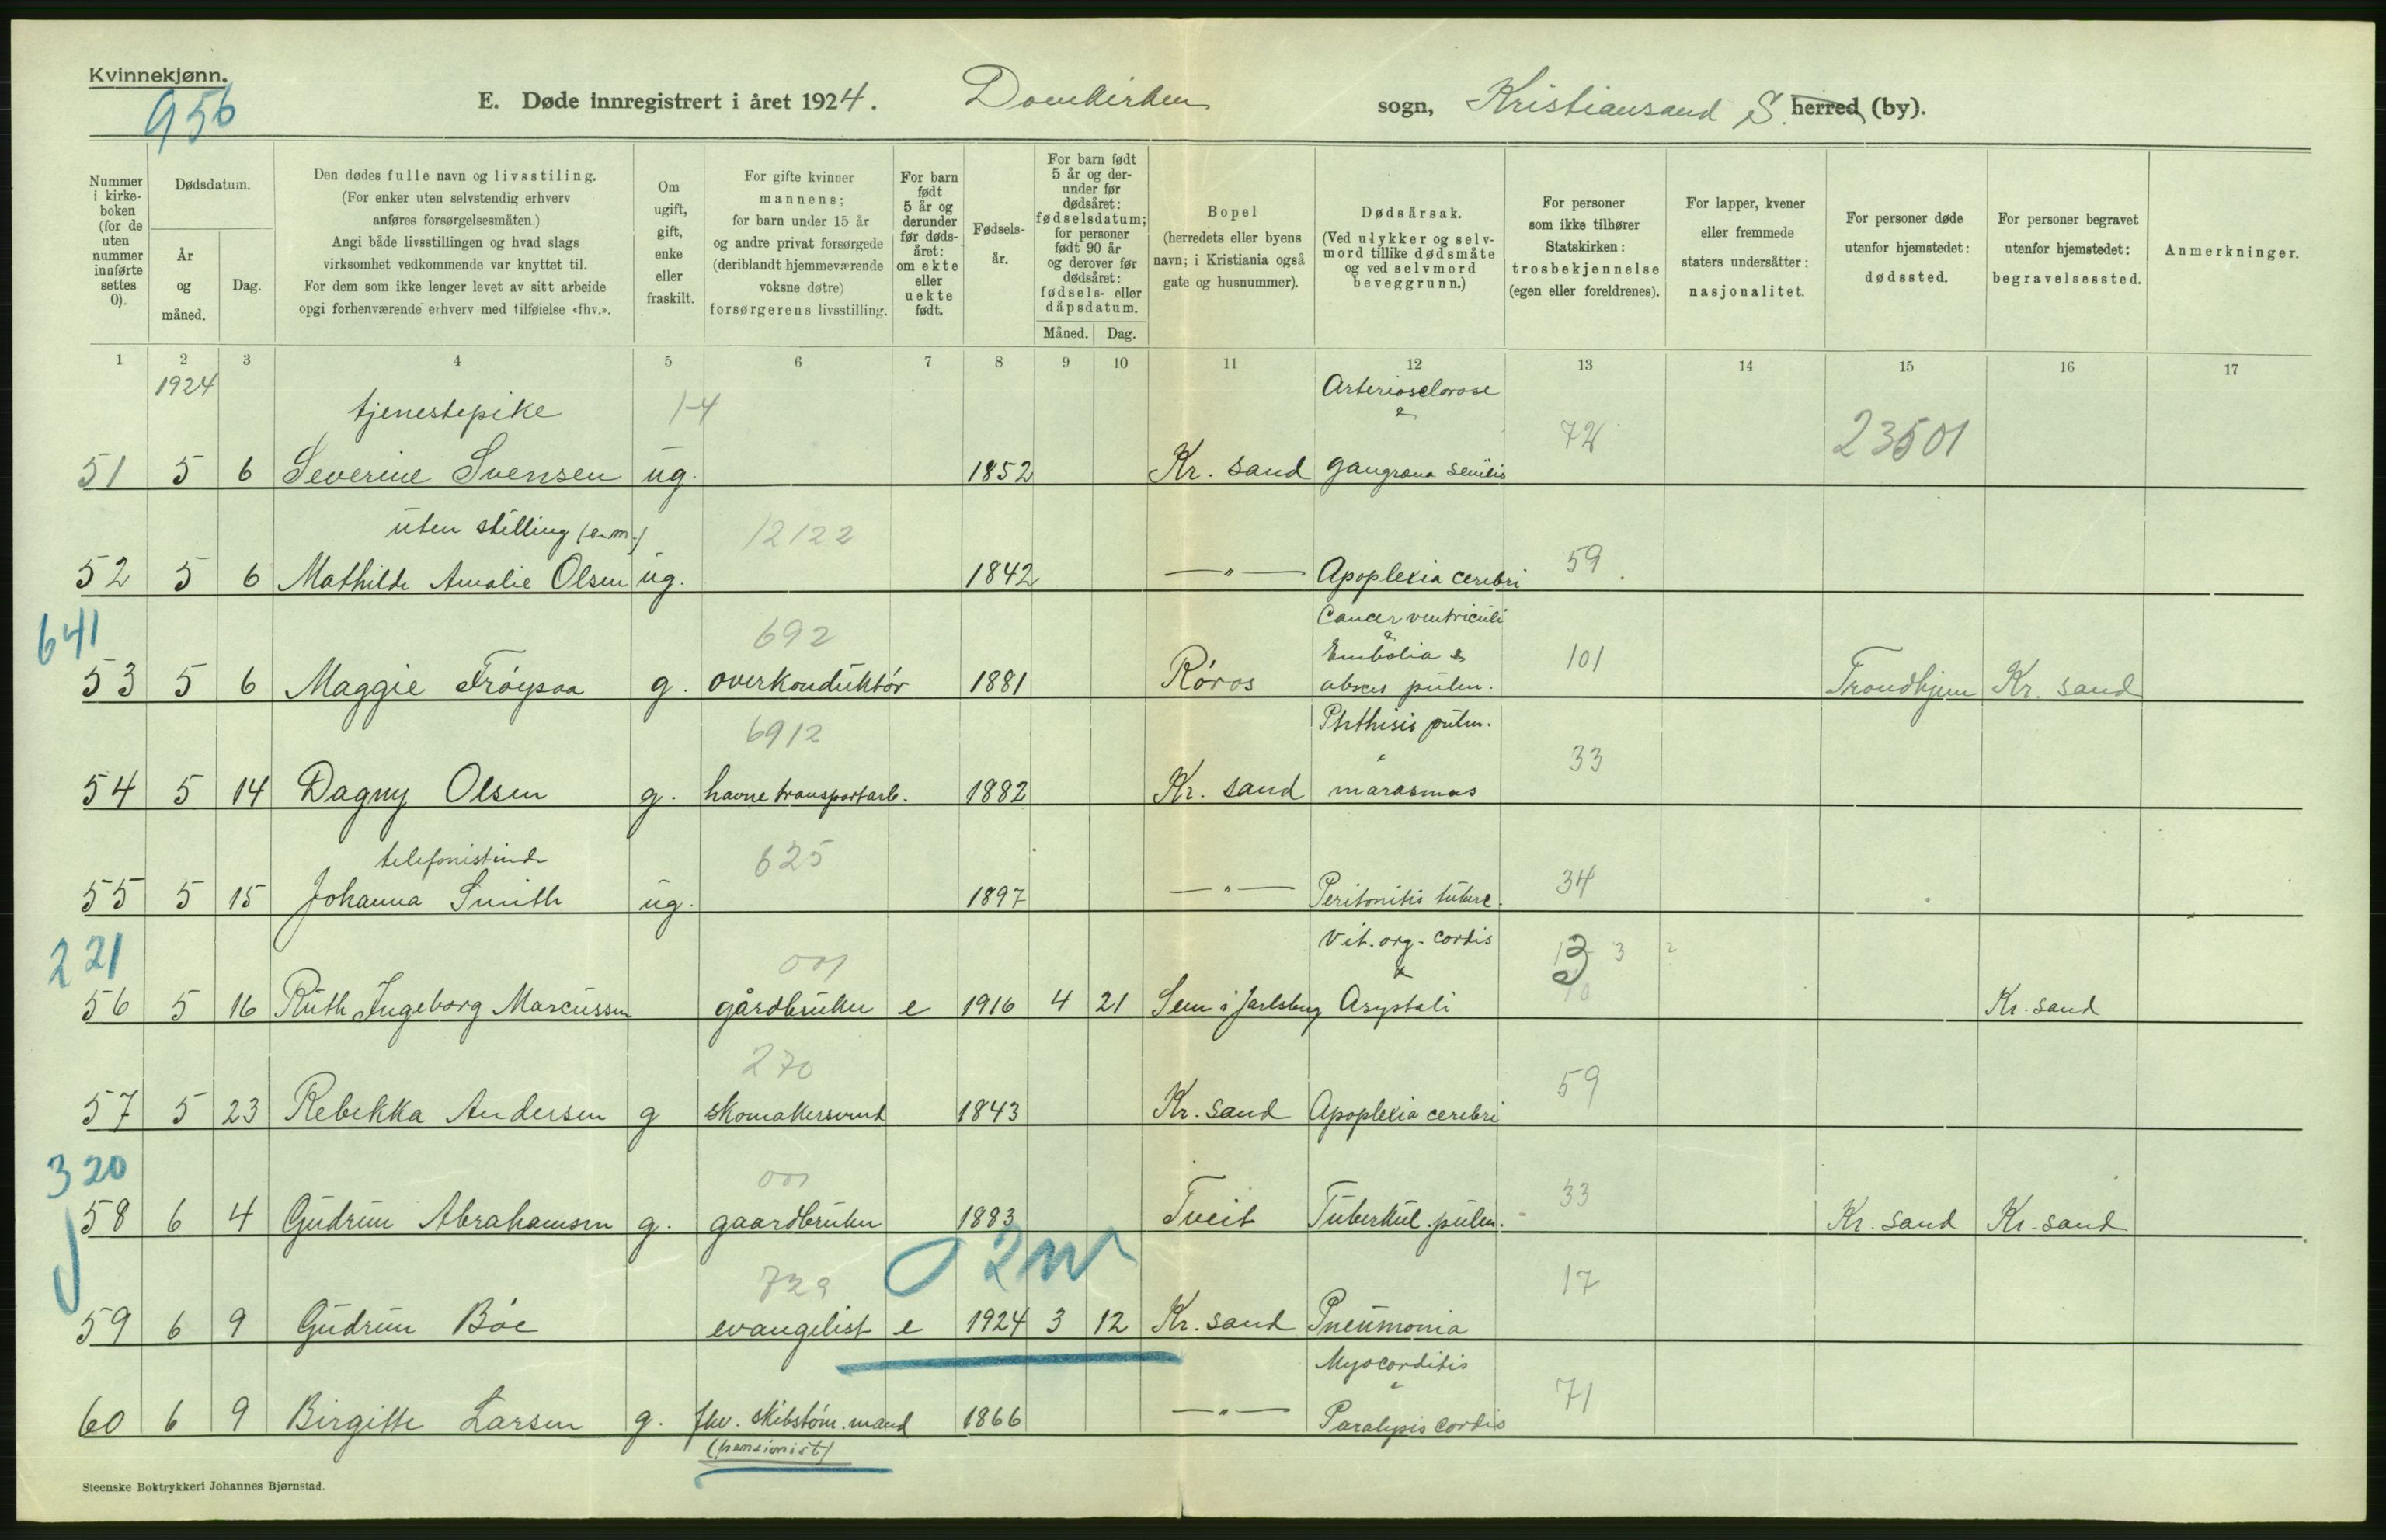 Kvinnekjønn.
956
E. Døde innregistrert i året 1924. Domkirken sogn, Kristiansand S. herred (by).
Nummer i kirkeboken (for de uten nummer innførte settes 0).
Dødsdatum.
År og måned.
Dag.
Den dødes fulle navn og livsstiling.
(For enker uten selvstendig erhverv
anføres forsørgelsesmåten.)
Angi både livsstillingen og hvad slags
virksomhet vedkommende var knyttet til.
For dem som ikke lenger levet av sitt arbeide
opgi forhenværende erhverv med tilføielse «fhv.».
Om ugift, gift, enke eller fraskilt.
For gifte kvinner
mannens;
for barn under 15 år
og andre privat forsørgede
(deriblandt hjemmeværende
voksne døtre)
forsørgerens livsstilling.
For barn født 5 år og derunder før dødsåret: om ekte eller uekte født.
Fødselsår.
For barn født 5 år og derunder før dødsåret: fødselsdatum; for personer født 90 år og derover før dødsåret: fødsels- eller dåpsdatum.
Måned. Dag.
Bopel
(herredets eller byens
navn; i Kristiania også
gate og husnummer).
Dødsårsak.
(Ved ulykker og selvmord tillike dødsmåte og ved selvmord beveggrunn.)
For personer
som ikke tilhører
Statskirken:
trosbekjennelse
(egen eller foreldrenes).
For lapper, kvener
eller fremmede
staters undersåtter:
nasjonalitet.
For personer døde
utenfor hjemstedet:
dødssted.
For personer begravet
utenfor hjemstedet:
begravelsessted.
Anmerkninger.
1 2 3 4 5 6 7 8 9 10 11 12 13 14 15 16 17
1924 Arteriosclorose
tjenestepike 1-4 & 72 23501
51 5 6 Severine Svensen ug. 1852 Kr. sand gangræna senilis
uten stilling (e.m.) 12122
52 5 6 Mathilde Amalie Olsen ug. 1842 —"— Apoplexia cerebri 59
641 692 Cancer ventriculi
& Embolia & 101
53 5 6 Maggie Frøysaa g. overkonduktør 1881 Røros absces pulm. Trondhjem Kr. sand
6912 Phthisis pulm.
33
54 5 14 Dagny Olsen g. havnetransportarb. 1882 Kr. sand marasmus
telefonistinde 625
55 5 15 Johanna Smith ug. 1897 —"— Peritonitis tuberc. 34
221 001 Vit. org. cordis 3 2
56 5 16 Ruth Ingeborg Marcussen gårdbruker e 1916 4 21 Sem i Jarlsberg & Asystoli Kr. sand
270 59
57 5 23 Rebekka Andersen g skomakersvend 1843 Kr. sand Apoplexia cerebri
320 001 33
58 6 4 Gudrun Abrahamsen g. gaardbruker 1883 Tveit Tuberkul. pulm. Kr. sand Kr. sand
729 17
59 6 9 Gudrun Bøe evangelist e 1924 3 12 Kr. sand Pneumonia
Myocorditis
71
60 6 9 Birgitte Larsen g. fhv. skibstøm.mand 1866 —"— Paralysis cordis
(pensionist)
Steenske Boktrykkeri Johannes Bjørnstad.